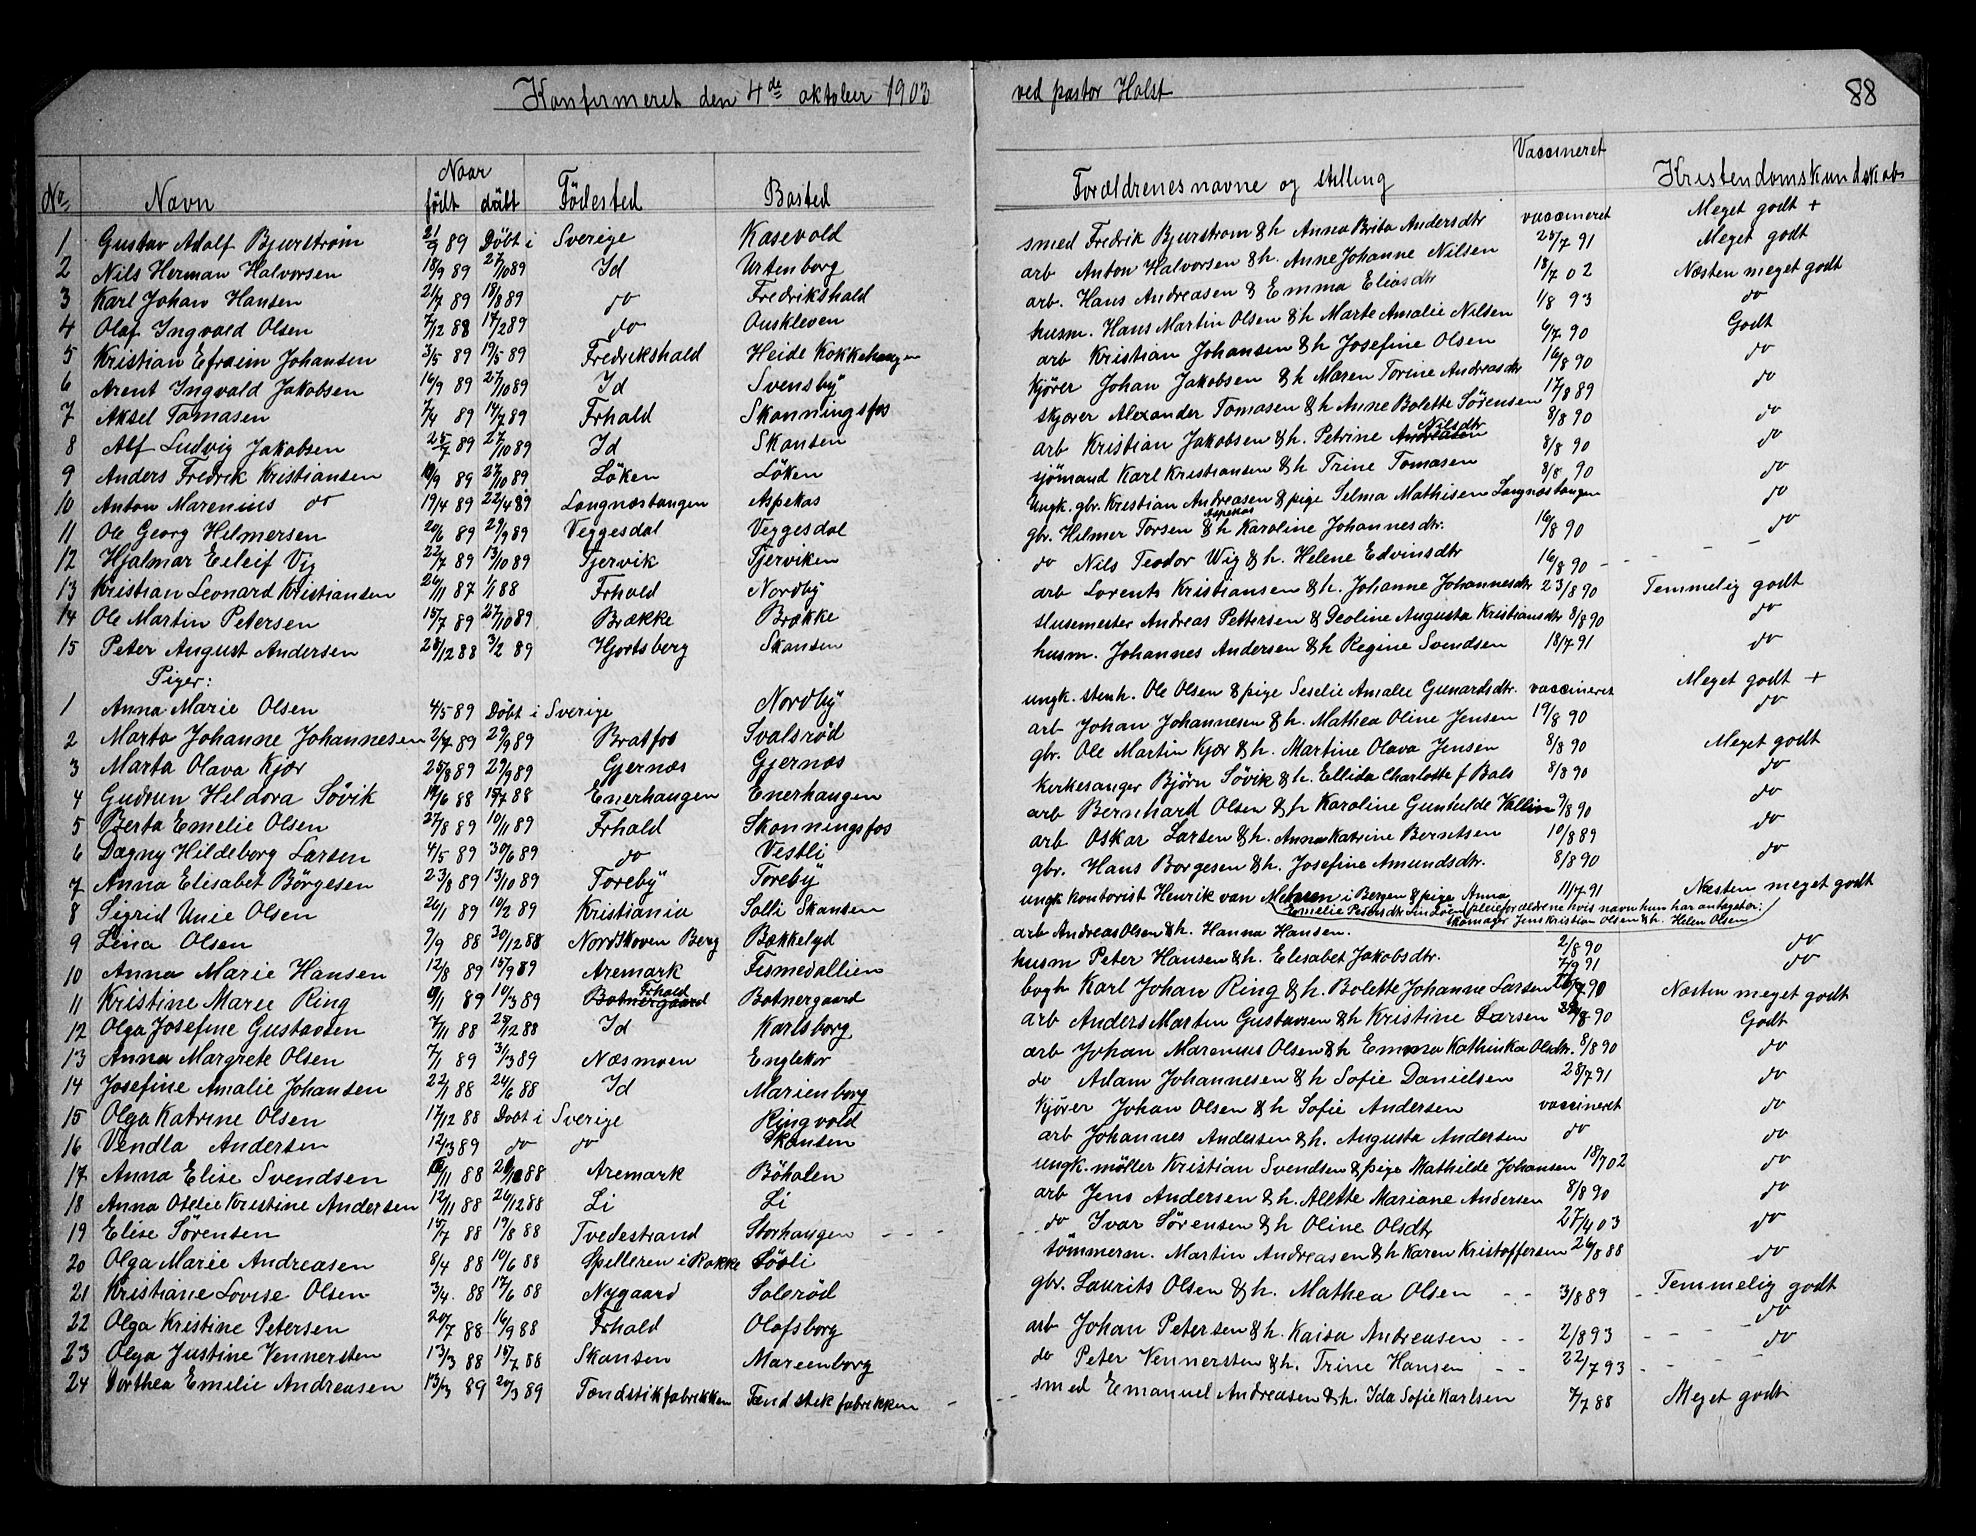 Konfirmeret den 4de oktober 1903 ved pastor Holst 88
Nr. Navn Naar födt döbt Födested Bosted Forældrenes navne og stilling Vaccineret Kristendomskundskab
1 Gustav Adolf Bjurström 21/9 89 Döbt i Sverige Kasevold smed Fredrik Bjurstrom & h Anna Brita Andersdtr vaccineret Meget godt +
2 Nils Herman Halvorsen 18/9 89 27/10 89 Id Urtenborg arb Anton Halvorsen & h. Anne Johanne Nilsen 28/7 91 Meget godt
3 Karl Johan Hansen 21/7 89 18/8 89 do Fredrikshald arb. Hans Andreasen & Emma Eliasdtr 18/7 02 Næsten meget godt
4 Olaf Ingvald Olsen 7/12 88 17/2 89 do Ouskleven husm. Hans Martin Olsen & h Marte Amalie Nilsen 1/8 93 do
5 Kristian Efraim Johansen 3/5 89 19/5 89 Fredrikshald Heide Kokkehaugen arb Kristian Johansen & h Josefine Olsen 6/7 90 Godt
6 Arent Ingvald Jakobsen 16/9 89 27/10 89 Id Svensby kjører Johan Jakobsen & h Maren Torine Andreasdtr 16/8 90 do
7 Aksel Tomasen 7/4 89 14/7 89 Frhald Skonningsfos skjover Alexander Tomasen & h Anne Bolette Sørensen 17/8 89 do
8 Alf Ludvig Jakobsen 25/7 89 27/10 89 Id Skansen arb Kristian Jakobsen & h. Petrine Andreasen Nilsdtr 8/8 90 do
9 Anders Fredrik Kristiansen 10/9 89 27/10 89 Löken Löken sjömand Karl Kristiansen & h Trine Tomasen 8/8 90 do
10 Anton Marenius do 19/4 89 22/4 89 Langnæstangen Aspekas Ungk. gbr. Kristian Andreasen & pige Selma Mathisen Langnæstangen Aspekas 8/8 90 do
11 Ole Georg Helmersen 20/6 89 29/9 89 Veggesdal Veggesdal gbr. Hilmer Torsen & h Karoline Johannesdtr. 16/8 90 do
12 Hjalmar Eeleif Vig 22/7 89 13/10 89 Tjervik Tjerviken do Nils Teodor Wig & h. Helene Edvinsdtr 16/8 90 do
13 Kristian Leonard Kristiansen 26/11 87 1/1 88 Frhald Nordby arb Lorents Kristiansen & h. Johanne Johannesdtr 23/8 90 Temmelig godt
14 Ole Martin Petersen 15/7 89 27/10 89 Brække Brække slusemester Andreas Pettersen & Geoline Augusta Kristiansdtr 8/8 90 do
15 Peter August Andersen 28/12 88 3/2 89 Hjortsberg Skansen husm. Johannes Andersen & h Regine Svendsen 18/7 91 do
Piger:
1 Anna Marie Olsen 4/5 89 Döbt i Sverige Nordby ungk. stenh. Ole Olsen & pige Seselie Amalie Gunardsdtr. vaccineret Meget godt +
2 Marta Johanne Johannesen 2/7 89 29/9 89 Bratfos Svalsröd arb Johan Johannesen & h. Mathea Oline Jensen 19/8 90 do
3 Marta Olava Kjær 25/8 89 29/9 89 Gjernæs Gjernæs gbr. Ole Martin Kjær & h. Martine Olava Jensen 8/8 90 Meget godt
4 Gudrun Hildora Sövik 19/6 88 15/7 88 Enerhaugen Enerhaugen Kirkesanger Bjørn Søvik & h. Ellida Charlotte f Bals 8/8 90 do
5 Berta Emelie Olsen 27/8 89 10/11 89 Frhald Skonningsfos arb Bernhard Olsen & h Karoline Gunhilde Vallin 9/8 90 do
6 Dagny Hildeborg Larsen 4/5 89 30/6 89 do Vestli arb Oskar Larsen & h. Anna Katrine Berntsen 10/8 89 do
7 Anna Elisabet Börgesen 23/8 89 13/10 89 Toreby Toreby gbr. Hans Borgesen & h. Josefine Amundsdtr. 8/8 90 do
8 Sigrid Unie Olsen 26/1 89 10/2 89 Kristiania Solli Skansen ungk. kontorist Henrik van i Bergen & pige Anna 11/7 91 Næsten meget godt
Emelie Petersdtr (pleieforældrene hvis navn hun har antaget er: skomager Jens Kristian Olsen & h. Helen Olsen)
9 Lina Olsen 9/9 88 30/12 88 Nordskoven Berg Bækkelyd arb Andreas Olsen & h. Hanna Hansen. 2/8 90 do
10 Anna Marie Hansen 12/8 89 15/9 89 Aremark Tismedallien husm Peter Hansen & h. Elisabet Jakobsdtr. 7/9 91 do
11 Kristine Marie Ring 10/1 89 10/3 89 Botnergaard Frhald Botnergaard bogh Karl Johan Ring & h. Bolette Johanne Larsen /7 90 Næsten meget godt
12 Olga Josefine Gustavsen 7/11 88 25/12 88 Id Karlsborg arb Anders Martin Gustavsen & h Kristine Larsen /8 90 Godt
13 Anna Margrete Olsen 7/1 89 31/3 89 Næsmoen Englekor arb Johan Marenius Olsen & h Emma Kathinka Olsdtr. 8/8 90 do
14 Josefine Amalie Johansen 22/1 88 24/6 88 Id Marienborg do Adam Johannesen & h Sofie Danielsen 28/7 91 do
15 Olga Katrine Olsen 17/12 88 Dobt i Sverige Ringvold Kjører Johan Olsen & h Sofie Andersen vaccineret do
16 Vendla Andersen 12/3 89 do do Skansen arb Johannes Andersen & h. Augusta Andersen do do
17 Anna Elise Svendsen /11 88 26/12 88 Aremark Böhalen ungk. møller Kristian Svendsen & pige Mathilde Johansen 18/7 02 do
18 Anna Otelie Kristine Andersen 12/11 88 26/12 88 Li Li arb Jens Andersen & h. Alette Mariane Andersen 8/8 90 do
19 Elise Sörensen 15/7 88 19/8 88 Tvedestrand Storhaugen do Ivar Sørensen & h Oline Olsdtr 27/4 03 do
20 Olga Marie Andreasen 8/4 88 10/6 88 Spelleren i Rokke Lövli tömmerm. Martin Andreasen & h Karen Kristoffersen 26/8 88 do
21 Kristiane Lovise Olsen 3/4. 88 17/6 88 Nygaard Solerød gbr. Laurits Olsen & h. Mathea Olsen 3/8 89 Temmelig godt
22 Olga Kristine Petersen 20/7 88 16/9 88 Frhald Olafsborg arb Johan Petersen & h. Kaisa Andreasen 2/8 93 do
23 Olga Justine Vennersten 13/3 88 15/7 88 Skansen Marienborg do Peter Vennersten & h. Trine Hansen 22/7 93 do
24 Dorthea Emilie Andreasen 13/3 89 20/3 89 Tændstikfabrikken Tændstikfabrikken smed Emanuel Andreasen & h. Ida Sofie Karlsen 7/7 88 Meget godt